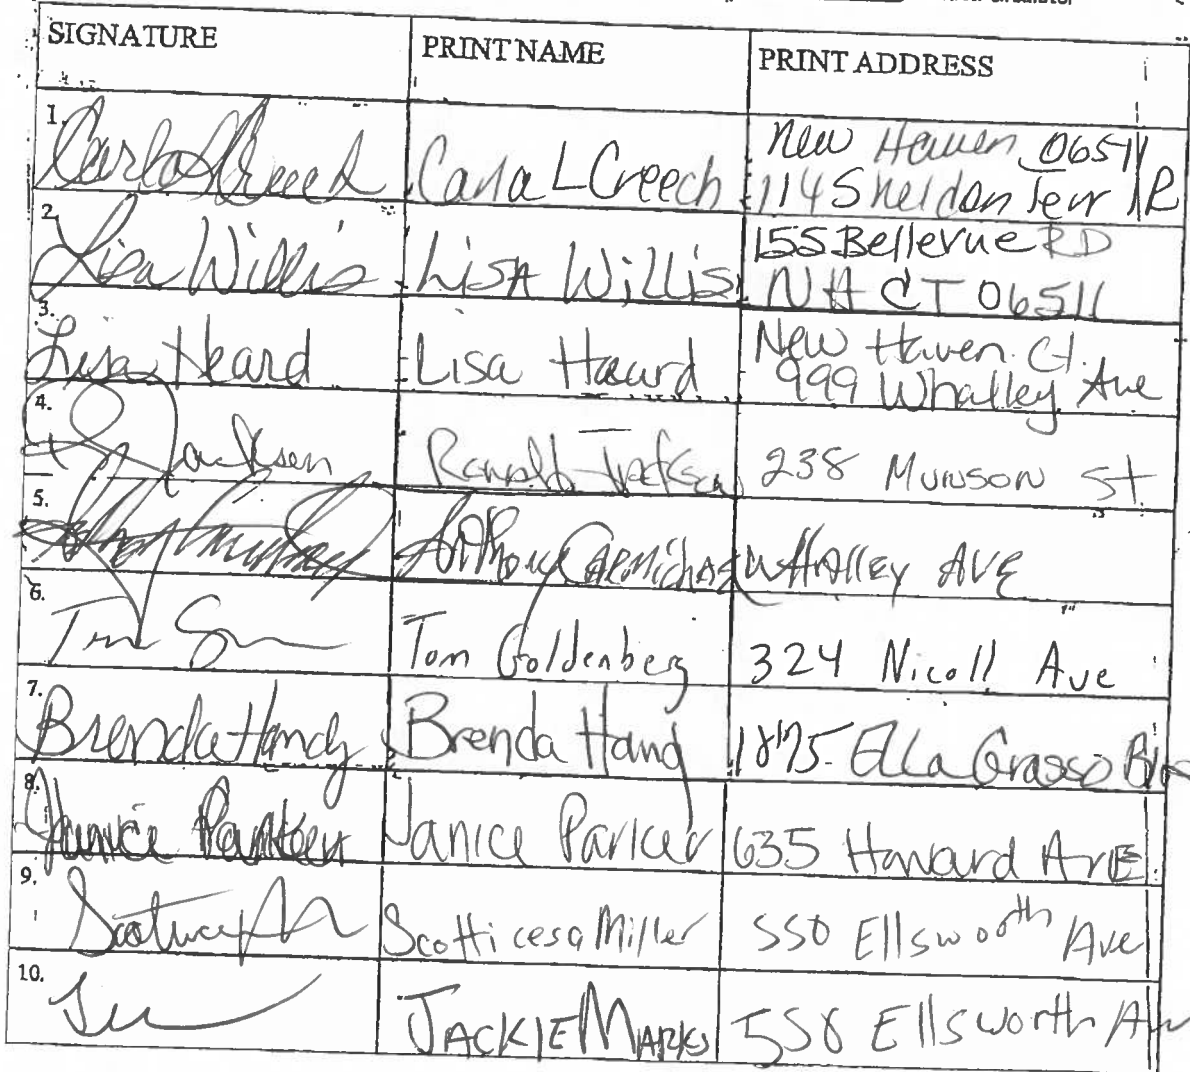 SIGNATURE PRINT NAME PRINT ADDRESS
1. Carla L Creech Carla L Creech New Haven 06511
114 Sheldon Terr
2. Lisa Willis LISA WILLIS 155 Bellevue RD
NH CT 06511
3. Lisa Heard Lisa Heard New Haven Ct.
999 Whalley Ave
4. Jackson Ronald Jackson 238 MUNSON St
5. Anthony Carmichael WHALLEY AVE
6. Tom Goldenberg 324 Nicoll Ave
7. Brenda Handy Brenda Hand 1875 Ella Grasso
8. Janice Parker Janice Parker 635 Howard AvE
9. Scotticesa Miller 550 Ellsworth Ave
10. JACKIE MARKS 558 Ellsworth